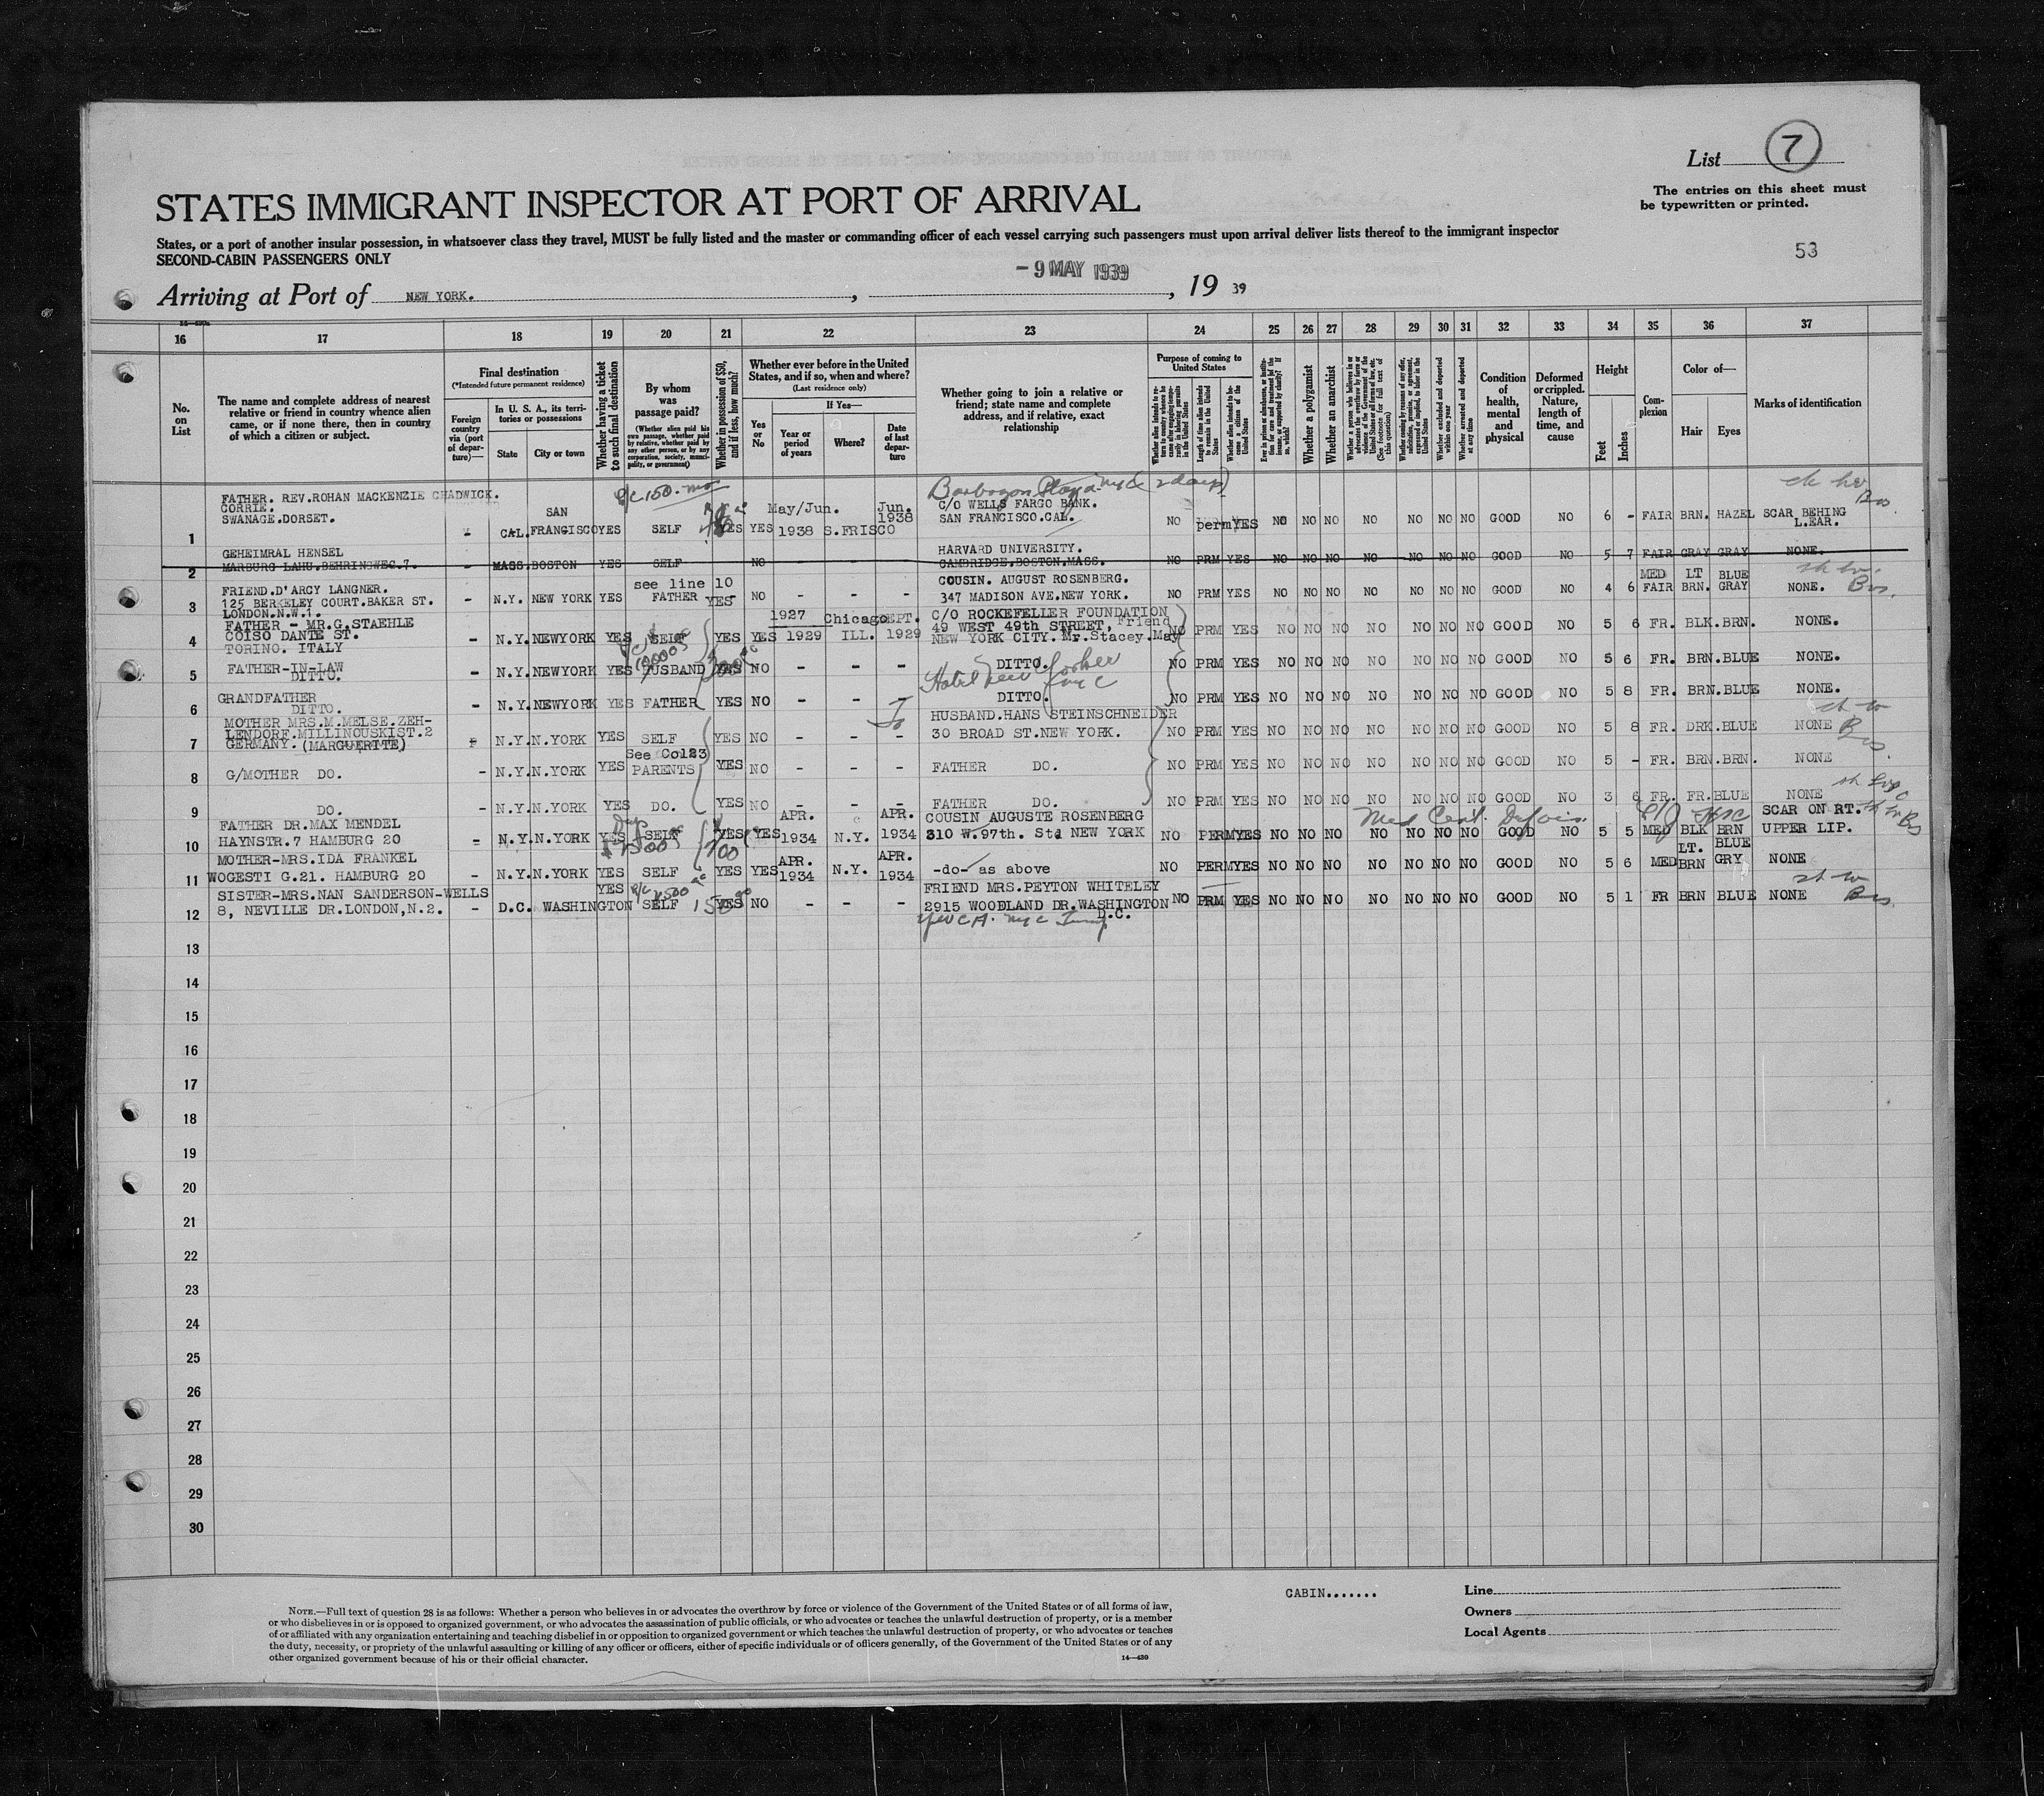 List 7
The entries on this sheet must
be typewritten or printed.
STATES IMMIGRANT INSPECTOR AT PORT OF ARRIVAL
States, or a port of another insular possession, in whatsoever class they travel, MUST be fully listed and the master or commanding officer of each vessel carrying such passengers must upon arrival deliver lists thereof to the immigrant inspector
SECOND-CABIN PASSENGERS ONLY
53
- 9 MAY 1939
Arriving at Port of NEW YORK. , , 19 39
16 17 18 19 20 21 22 23 24 25 26 27 28 29 30 31 32 33 34 35 36 37
No. on List
The name and complete address of nearest relative or friend in country whence alien came, or if none there, then in country of which a citizen or subject.
Final destination
(*Intended future permanent residence)
Foreign country via (port of departure)—
In U. S. A., its territories or possessions
State
City or town
Whether having a ticket to such final destination
By whom was passage paid?
(Whether alien paid his own passage, whether paid by relative, whether paid by any other person, or by any corporation, society, municipality, or government)
Whether in possession of $50, and if less, how much?
Whether ever before in the United States, and if so, when and where?
(Last residence only)
Yes or No
If Yes—
Year or period of years
Where?
Date of last departure
Whether going to join a relative or friend; state name and complete address, and if relative, exact relationship
Purpose of coming to United States
Whether a polygamist
Whether an anarchist
Whether excluded and deported within one year
Whether arrested and deported at any time
Condition of health, mental and physical
Deformed or crippled. Nature, length of time, and cause
Height
Feet
Inches
Complexion
Color of—
Hair
Eyes
Marks of identification
1 FATHER. REV.ROHAN MACKENZIE CHADWICK. CORRIE. SWANAGE.DORSET. - CAL. SAN FRANCISCO YES SELF YES YES May/Jun. 1938 S.FRISCO Jun. 1938 C/O WELLS FARGO BANK. SAN FRANCISCO.CAL. NO perm YES NO NO NO NO NO NO NO GOOD NO 6 - FAIR BRN. HAZEL SCAR BEHING L.EAR.
2 GEHEIMRAL HENSEL MARBURG LAHU.BEHRINGWEG.7. - MASS. BOSTON YES SELF NO HARVARD UNIVERSITY. CAMBRIDGE.BOSTON.MASS. NO PRM YES NO NO NO NO NO NO NO GOOD NO 5 7 FAIR GRAY GRAY NONE.
3 FRIEND.D'ARCY LANGNER. 125 BERKELEY COURT.BAKER ST. LONDON.N.W.1. - N.Y. NEW YORK YES see line 10 FATHER YES NO - - - COUSIN. AUGUST ROSENBERG. 347 MADISON AVE.NEW YORK. NO PRM YES NO NO NO NO NO NO NO GOOD NO 4 6 MED FAIR LT BRN. BLUE GRAY NONE.
4 FATHER - MR.G.STAEHLE COISO DANTE ST. TORINO. ITALY - N.Y. NEWYORK YES SELF YES YES 1927 1929 Chicago ILL. SEPT. 1929 C/O ROCKEFELLER FOUNDATION 49 WEST 49th STREET, Friend NEW YORK CITY. Mr.Stacey.May NO PRM YES NO NO NO NO NO NO NO GOOD NO 5 6 FR. BLK. BRN. NONE.
5 FATHER-IN-LAW DITTO. - N.Y. NEWYORK YES HUSBAND YES NO - - - DITTO. NO PRM YES NO NO NO NO NO NO NO GOOD NO 5 6 FR. BRN. BLUE NONE.
6 GRANDFATHER DITTO. - N.Y. NEWYORK YES FATHER YES NO - - - DITTO. NO PRM YES NO NO NO NO NO NO NO GOOD NO 5 8 FR. BRN. BLUE NONE.
7 MOTHER MRS.M.MELSE.ZEHLENDORF.MILLINOUSKIST.2 GERMANY. (MARGUERITTE) - N.Y. N.YORK YES SELF YES NO - - - HUSBAND.HANS STEINSCHNEIDER 30 BROAD ST.NEW YORK. NO PRM YES NO NO NO NO NO NO NO GOOD NO 5 8 FR. DRK. BLUE NONE
8 G/MOTHER DO. - N.Y. N.YORK YES See Col23 PARENTS YES NO - - - FATHER DO. NO PRM YES NO NO NO NO NO NO NO GOOD NO 5 - FR. BRN. BRN. NONE
9 DO. - N.Y. N.YORK YES DO. YES NO - - - FATHER DO. NO PRM YES NO NO NO NO NO NO NO GOOD NO 3 6 FR. FR. BLUE NONE
10 FATHER DR.MAX MENDEL HAYNSTR.7 HAMBURG 20 - N.Y. N.YORK YES SELF YES YES APR. 1934 N.Y. APR. 1934 COUSIN AUGUSTE ROSENBERG 310 W.97th. Std NEW YORK NO PERM YES NO NO NO NO NO NO NO GOOD NO 5 5 MED BLK BRN SCAR ON RT. UPPER LIP.
11 MOTHER-MRS.IDA FRANKEL WOGESTI G.21. HAMBURG 20 - N.Y. N.YORK YES SELF YES YES APR. 1934 N.Y. APR. 1934 -do- as above NO PERM YES NO NO NO NO NO NO NO GOOD NO 5 6 MED LT. BRN BLUE GRY NONE
12 SISTER-MRS.NAN SANDERSON-WELLS 8, NEVILLE DR.LONDON,N.2. - D.C. WASHINGTON YES SELF YES NO - - - FRIEND MRS.PEYTON WHITELEY 2915 WOODLAND DR.WASHINGTON D.C. NO PRM YES NO NO NO NO NO NO NO GOOD NO 5 1 FR BRN BLUE NONE
13
14
15
16
17
18
19
20
21
22
23
24
25
26
27
28
29
30
CABIN.......
Line
Owners
Local Agents
NOTE.—Full text of question 28 is as follows: Whether a person who believes in or advocates the overthrow by force or violence of the Government of the United States or of all forms of law,
or who disbelieves in or is opposed to organized government, or who advocates the assassination of public officials, or who advocates or teaches the unlawful destruction of property, or is a member
of or affiliated with any organization entertaining and teaching disbelief in or opposition to organized government or which teaches the unlawful destruction of property, or who advocates or teaches
the duty, necessity, or propriety of the unlawful assaulting or killing of any officer or officers, either of specific individuals or of officers generally, of the Government of the United States or of any
other organized government because of his or their official character.
14—430